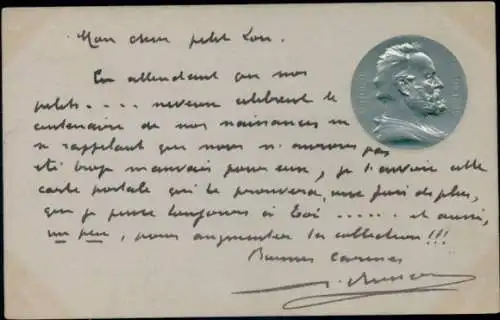 Mon cher petit Lou.
En attendant que nos
petits .... neveux celebrent le
centenaire de nos naissances
se rappelant que nous n'aurons pas
été trop mauvais pour eux, je t'envoie cette
carte postale qui te prouvera, une fois de plus,
que je pense toujours à toi ..... et aussi,
un peu, pour augmenter ta collection!!!
Bonnes caresses